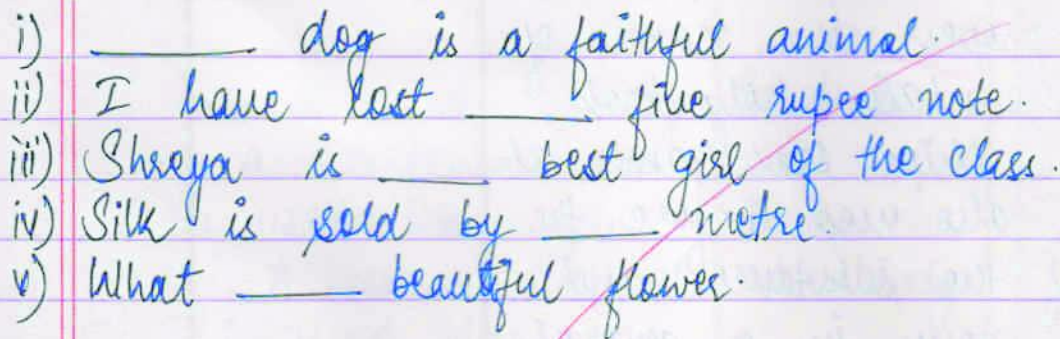 i) ______ dog is a faithful animal.
ii) I have lost ______ five rupee note.
iii) Shreya is ____ best girl of the class.
iv) Silk is sold by ____ metre
v) What ____ beautiful flower.